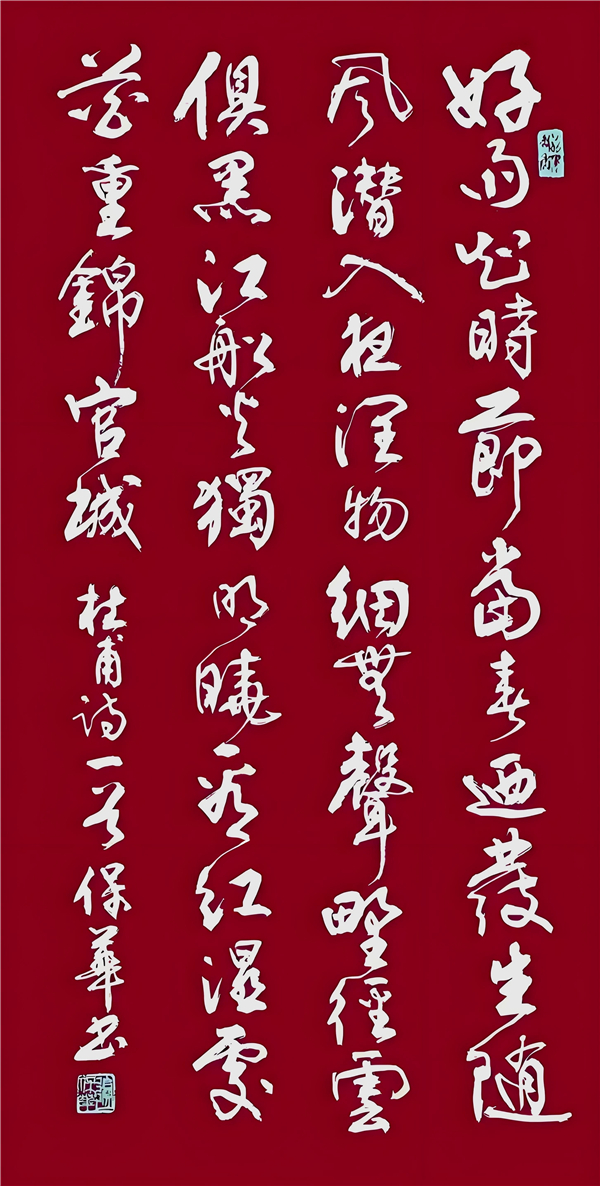 好雨知時節當春迺發生随
风潜入夜润物細無聲野徑雲
俱黑江船火獨明曉看红湿處
花重錦官城 杜甫诗一首 保華书